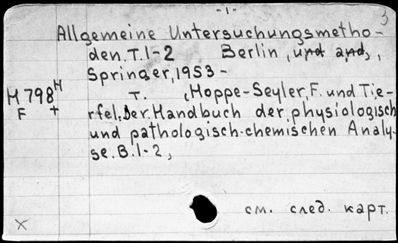 -1-
3
Allgemeine Untersuchungsmetho-
den. T. 1-2 Berlin, und and,
Springer, 1953-
H 798 H
F +
T. , Hoppe-Seyler, F. und Tie-
rfel. Der. Handbuch der physiologisch
und pathologisch-chemischen Analy-
se. B. 1-2,
см. след. карт.
X